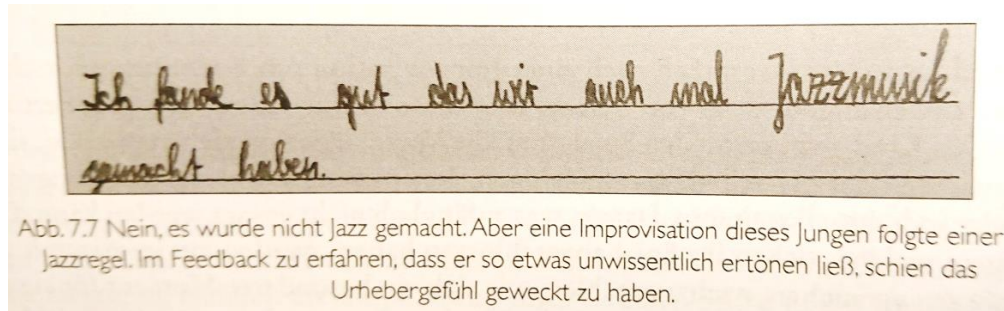 Ich fande es gut das wir auch mal Jazzmusik
gemacht haben.
Abb. 7.7 Nein, es wurde nicht Jazz gemacht. Aber eine Improvisation dieses Jungen folgte einer
Jazzregel. Im Feedback zu erfahren, dass er so etwas unwissentlich ertönen ließ, schien das
Urhebergefühl geweckt zu haben.